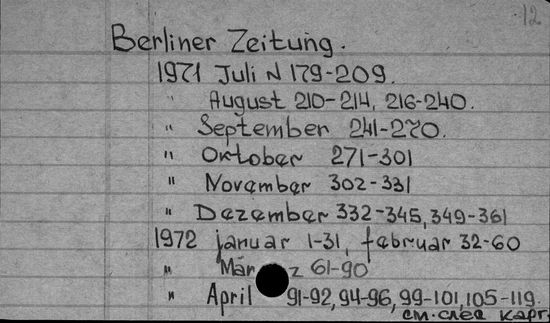 12
Berliner Zeitung.
1971 Juli N 179-209.
" August 210-214, 216-240.
" September 241-270.
" Oktober 271-301
" November 302-331
" Dezember 332-345, 349-361
1972 januar 1-31, februar 32-60
" März 61-90
" April 91-92, 94-96, 99-101, 105-119.
см. след карт.